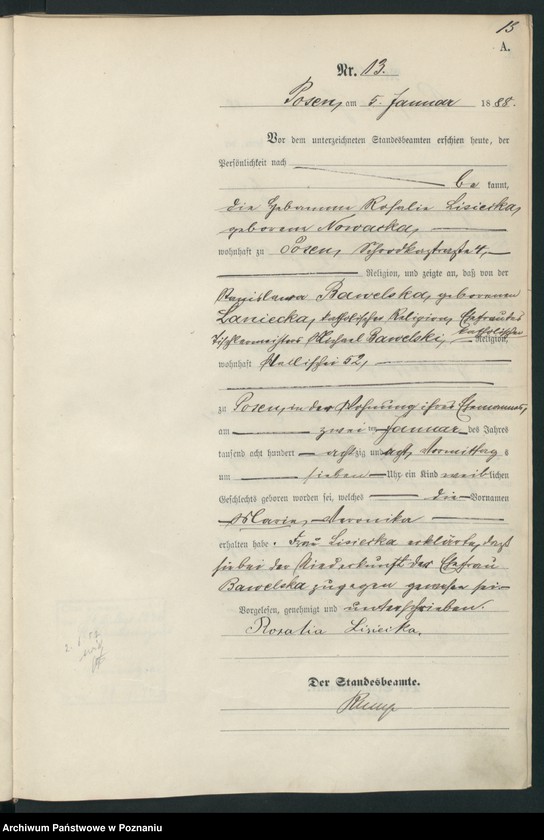 13
A.
Nr. 13.
Posen, am 5. Januar 1888.
Vor dem unterzeichneten Standesbeamten erschien heute, der
Persönlichkeit nach
be kannt,
die Hebamme Rosalie Lisiecka,
geborene Nowacka,
wohnhaft zu Posen,
Religion, und zeigte an, daß von der
Stanislawa Bawelska, geborenen
Laniecka, katholischer Religion, Ehefrau des
Tischlermeisters Michael Bawelski, katholischer Religion,
wohnhaft Wallischei 52,
zu Posen, in der Wohnung ihres Ehemannes,
am zwei ten Januar des Jahres
tausend acht hundert achtzig und acht, Vormittags
um sieben Uhr ein Kind weiblichen
Geschlechts geboren worden sei, welches die Vornamen
Maria Veronika
erhalten habe. Frau Lisiecka erklärte, daß
sie bei der Niederkunft der Ehefrau
Bawelska zugegen gewesen sei.
Vorgelesen, genehmigt und unterschrieben.
Rosalia Lisiecka.
Der Standesbeamte.
Archiwum Państwowe w Poznaniu